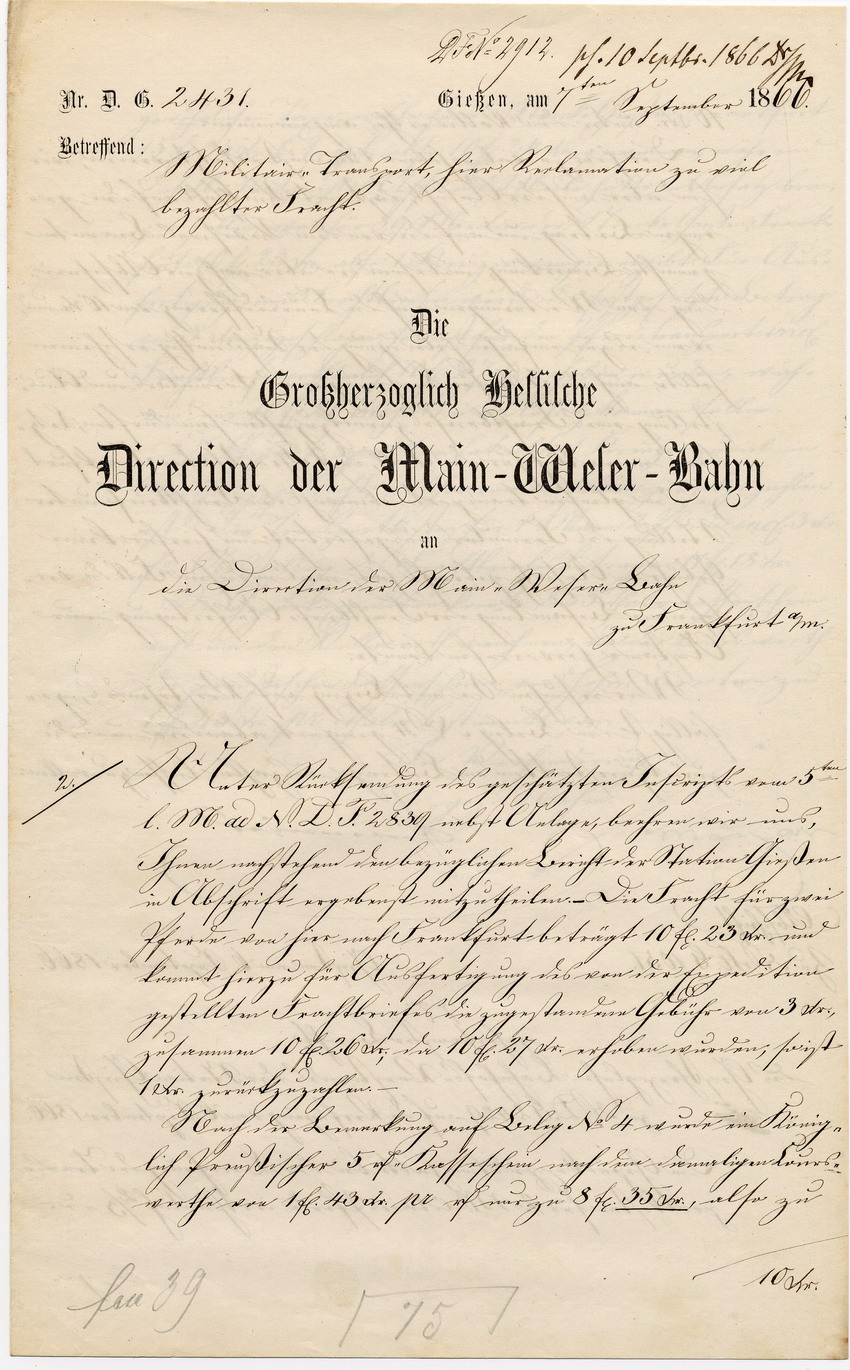 D F No 2912. ps. 10 Septbr. 1866
Nr. D. G. 2431. Gießen, am 7ten September 1866.
Betreffend:
Militair-Transport, hier Reclamation zu viel
bezahlter Fracht.
Die
Großherzoglich Hessische
Direction der Main-Weser-Bahn
an
die Direction der Main-Weser-Bahn
zu Frankfurt a/m.
2. Unter Rücksendung des geschätzten Inscripts vom 5ten
l. M. ad N. D. F. 2839 nebst Anlage, beehren wir uns,
Ihnen nachstehend den bezüglichen Bericht der Station Gießen
in Abschrift ergebenst mitzutheilen. — Die Fracht für zwei
Pferde von hier nach Frankfurt beträgt 10 fl. 23 Xr. und
kommt hierzu für Ausfertigung des von der Expedition
gestellten Frachtbriefes die zugestandene Gebühr von 3 Xr.,
zusammen 10 fl. 26 Xr., da 10 fl. 27 Xr. erhoben wurden, so ist
1 Xr. zurückzuzahlen. —
Nach der Bemerkung auf Beleg No 4 wurde ein König-
lich Preußischer 5 rf-Kasseschein nach dem damaligen Cours-
werthe von 1 fl. 43 Xr. pr rf nur zu 8 fl. 35 Xr., also zu
10 Xr.
39
75